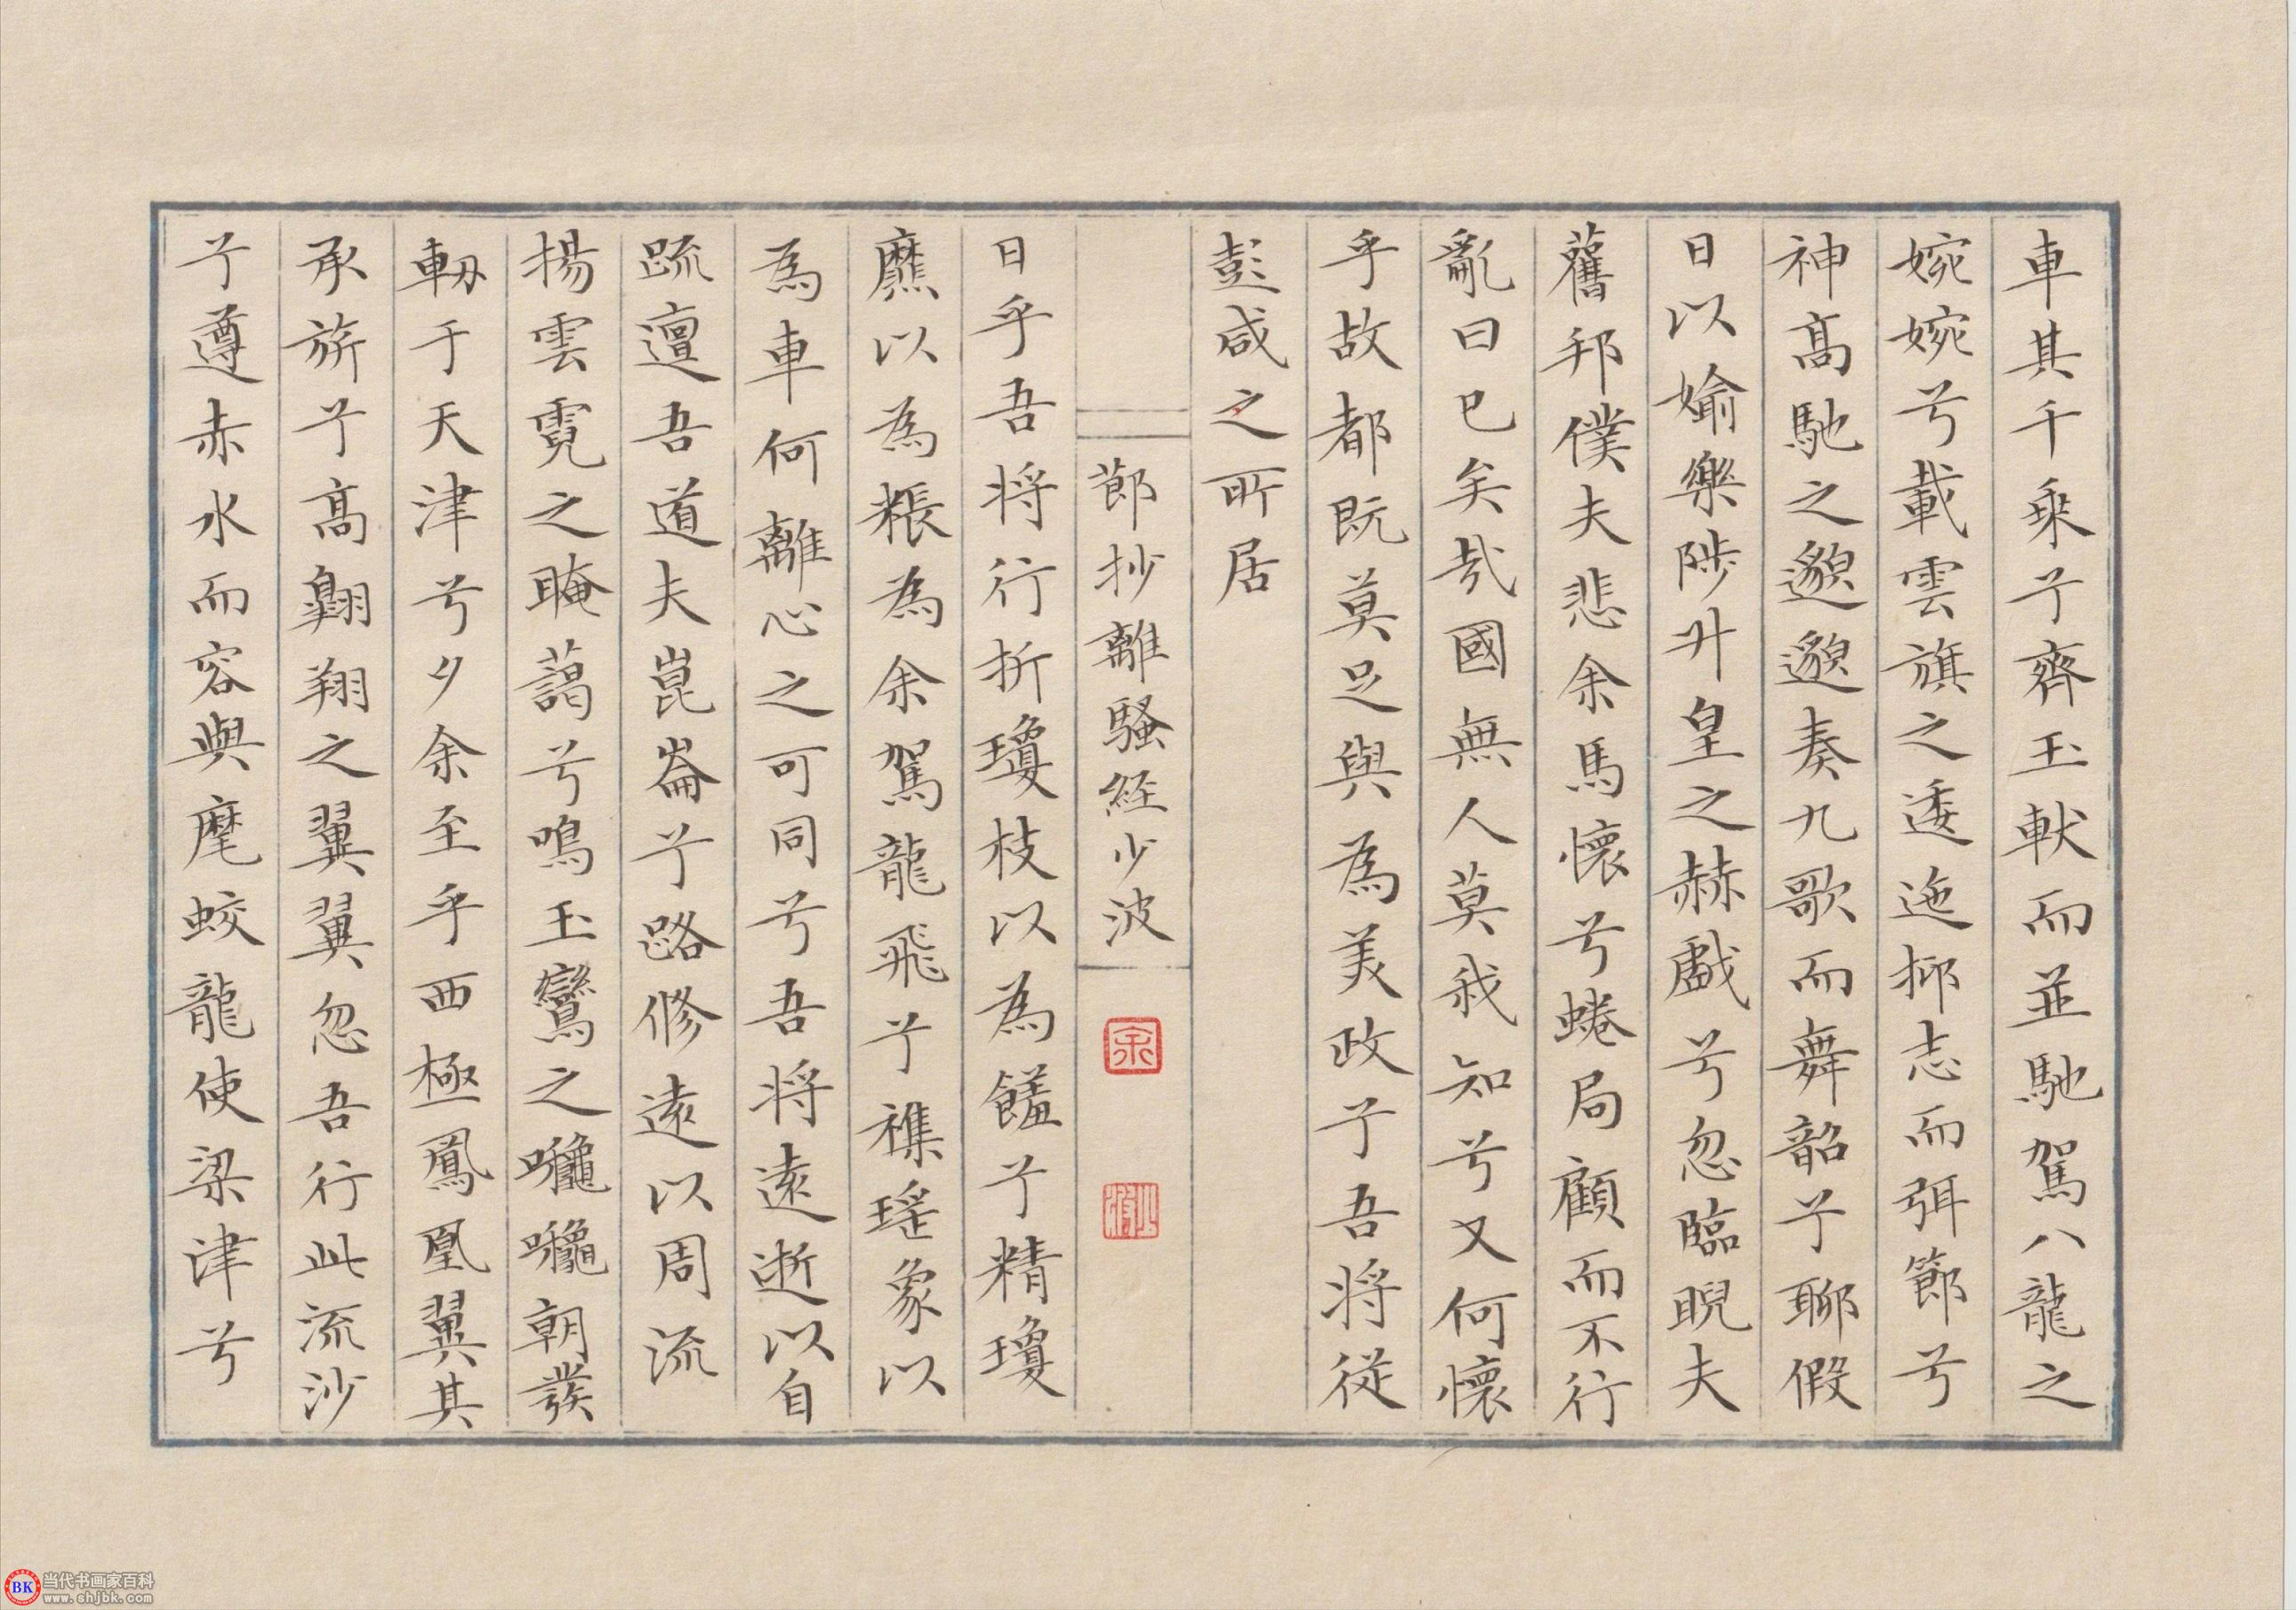 車其千乘兮齊玉軑而並馳駕八龍之
婉婉兮載雲旗之逶迤抑志而弭節兮
神高馳之邈邈奏九歌而舞韶兮聊假
日以媮樂陟升皇之赫戲兮忽臨睨夫
舊邦僕夫悲余馬懷兮蜷局顧而不行
亂曰已矣哉國無人莫我知兮又何懷
乎故都既莫足與為美政兮吾将從
彭咸之所居
節抄離騷経少波
余
少波
日乎吾将行折瓊枝以為饈兮精瓊
以為粻為余駕龍飛兮襍瑤象以
為車何離心之可同兮吾将遠逝以自
疏邅吾道夫崑崙兮路修遠以周流
揚雲霓之晻藹兮鳴玉鸞之啾啾朝發
軔于天津兮夕余至乎西極鳳凰翼其
承旂兮高翱翔之翼翼忽吾行此流沙
兮遵赤水而容與麾蛟龍使梁津兮
BK 当代书画家百科
www.shjbk.com